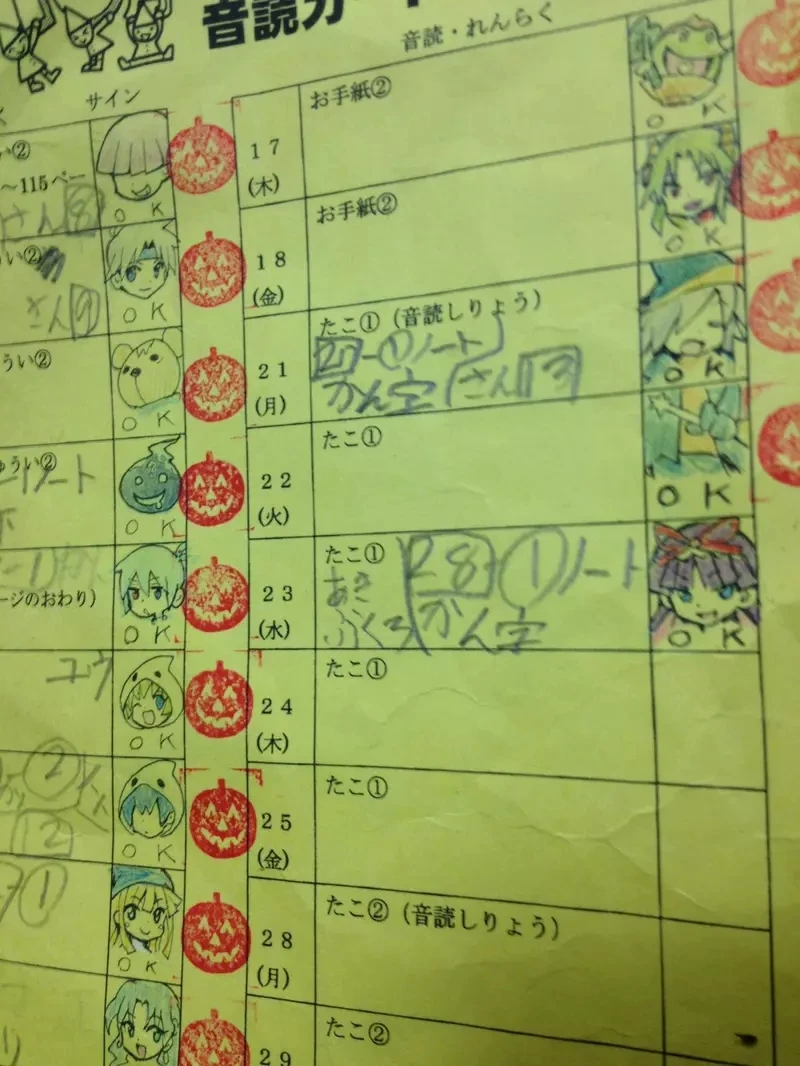 音読カード
サイン
音読・れんらく
い②
～115ペー
さん⑧
OK
17
(木)
お手紙②
OK
い②
さん⑨
OK
18
(金)
お手紙②
OK
うい②
OK
21
(月)
たこ①（音読しりょう）
27-①ノート
かん字 さん13
OK
ゅうい②
ノート
OK
22
(火)
たこ①
OK
ージのおわり）
OK
23
(水)
たこ①
あき
ぶくろ
28-①ノート
かん字
OK
ユウ
OK
24
(木)
たこ①
②
12
OK
25
(金)
たこ①
①
OK
28
(月)
たこ②（音読しりょう）
29
たこ②